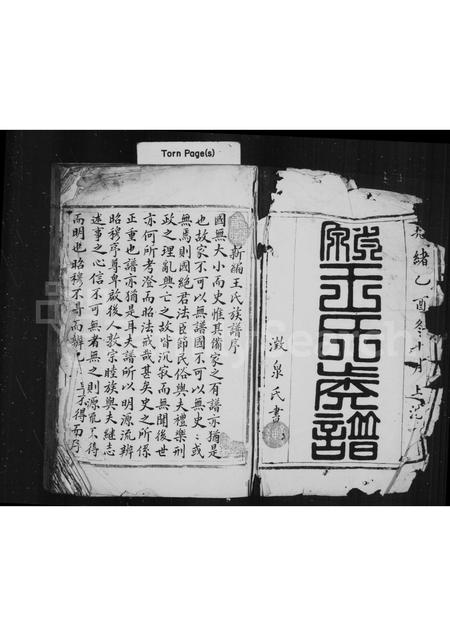 Torn Page(s)
光緒乙酉冬十
王氏族譜
澂泉氏書
新編王氏族譜序
國無大小而史惟其備家之有譜亦猶是
也故家不可以無譜國不可以無史
或無焉則國絕君法臣節民俗與夫禮樂刑
政之理亂興亡之故皆沉寂而無聞後世
亦何所考澄而昭法戒哉甚矣史之所係
正重也譜亦猶是耳夫譜所以明源流辨
昭穆序尊卑啟後人敦宗睦族與夫繼志
述事之心信不可無者無之則源流不得
而明也昭穆不可得而辨也